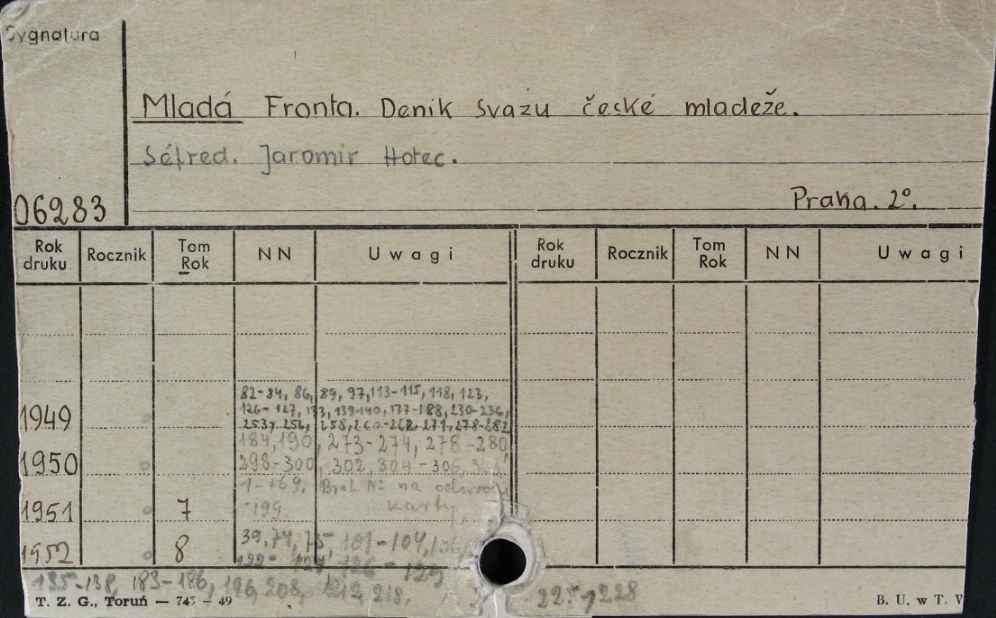 Sygnatura
Mladá Fronta. Denik Svazu české mladeže.
Séfred. Jaromir Hořec.
06283
Praha. 2°.
Rok druku Rocznik Tom Rok NN Uwagi Rok druku Rocznik Tom Rok NN Uwagi
82-84, 86, 89, 97, 113-115, 118, 123,
1949 126-127, 133, 139-140, 177-188, 230-236,
253, 256, 258, 260-262, 271, 278-282
184, 190, 273-274, 278-280
1950 298-300, 302, 304-306,
Brak Nr na odwrocie
1951 7 -199 karty
39, 74, 75 101-104,
1952 8 122- 124 126-129
135-138, 183-186, 196, 208, 212, 218. 228
T. Z. G., Toruń — 745 - 49
B. U. w T. V